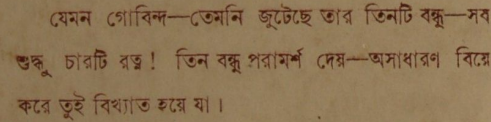 যেমন গোবিন্দ—তেমনি জুটেছে তার তিনটি বন্ধু—সব
শুদ্ধু চারটি রত্ন! তিন বন্ধু পরামর্শ দেয়—অসাধারণ বিয়ে
করে তুই বিখ্যাত হয়ে যা।